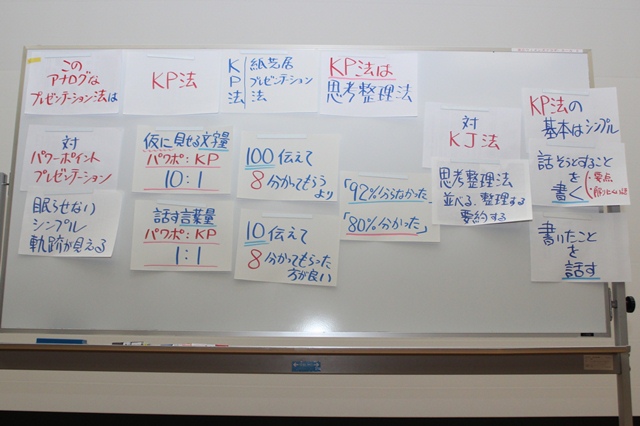 この
アナログな
プレゼンテーション法は
KP法
KP法
紙芝居
プレゼンテーション
法
KP法は
思考整理法
対
パワーポイント
プレゼンテーション
眠らせない
シンプル
軌跡が見える
仮に見せる文字量
パワポ:KP
10:1
話す言葉量
パワポ:KP
1:1
100伝えて
8分かってもらう
より
10伝えて
8分かってもらった
方が良い
「92%分らなかった」
「80%分かった」
対
KJ法
思考整理法
並べる、整理する
要約する
KP法の
基本はシンプル
話そうとすること
を
書く
・要点
書いたこと
を
話す